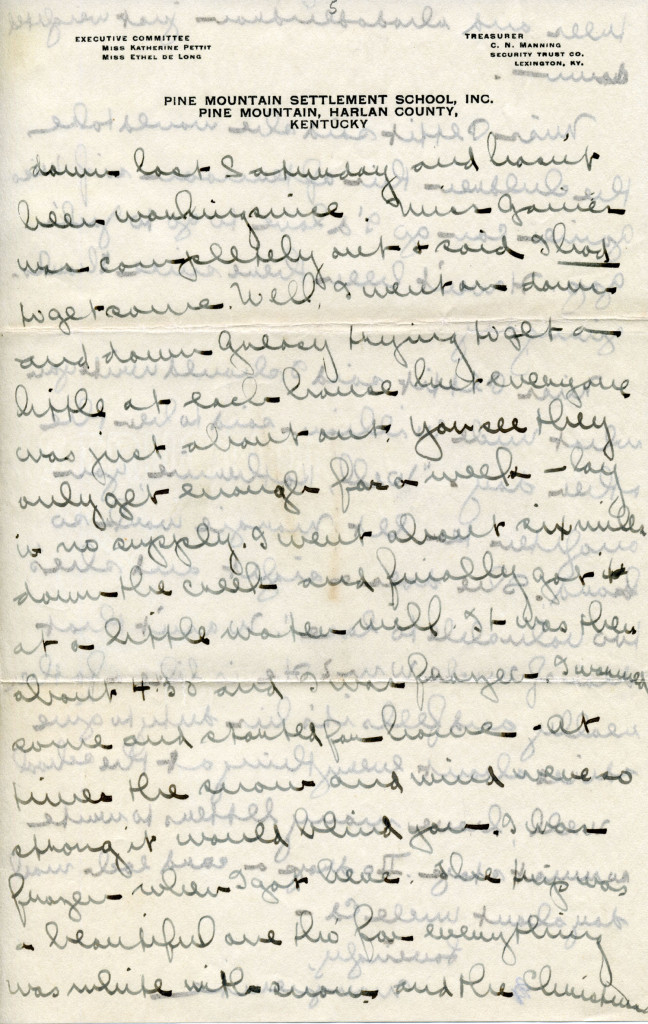 5
EXECUTIVE COMMITTEE
MISS KATHERINE PETTIT
MISS ETHEL DE LONG
TREASURER
C. N. MANNING
SECURITY TRUST CO.
LEXINGTON, KY.
PINE MOUNTAIN SETTLEMENT SCHOOL, INC.
PINE MOUNTAIN, HARLAN COUNTY,
KENTUCKY
down last Saturday and hasn't
been working since. Miss Gaines
was completely out & said I had
to get some. Well, I went on down
and down Greasy trying to get a
little at each house but everyone
was just about out. You see they
only get enough for a week - lay
in no supply. I went about six miles
down the creek and finally got it
at a little water mill. It was then
about 4:30 and I was frozen. I warmed
some and started for home - At
times the snow and wind were so
strong it would blind you. I was
frozen when I got here. The trip was
a beautiful one tho for everything
was white with snow and the Christmas